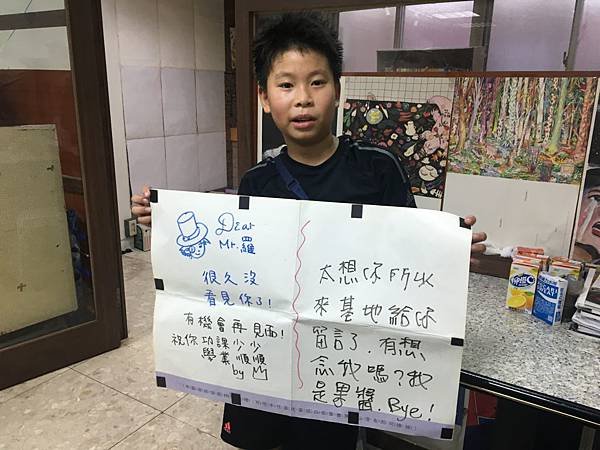 Dear
Mr.羅
很久沒
看見你了!
有機會再見面!
祝你功課少少
學業順順
by 凹
太想你所以
來基地給你
留言了,有想
念我嗎?我
是果醬,Bye!